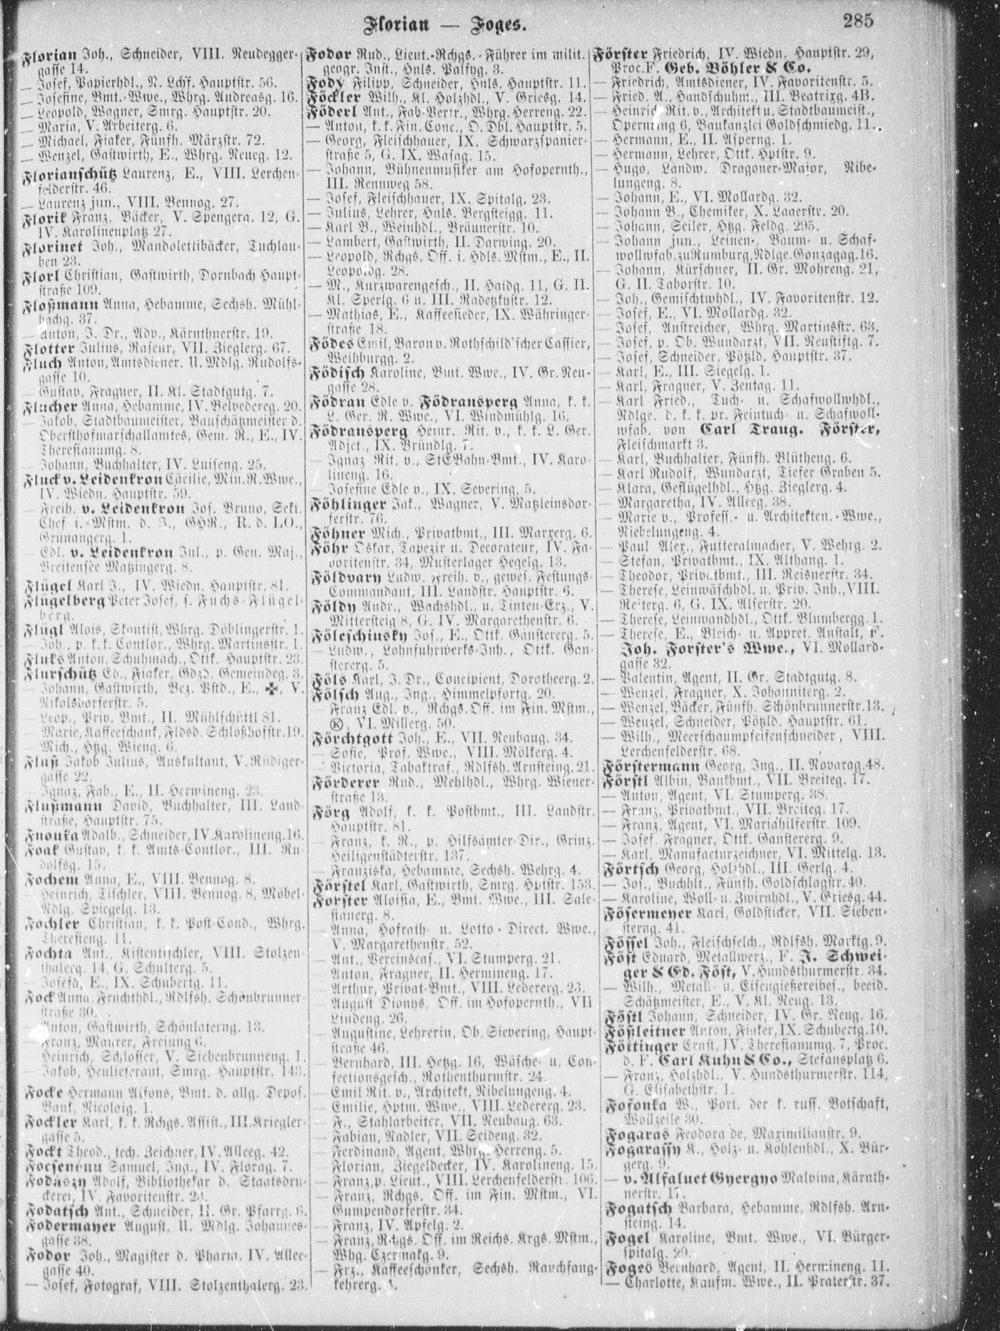 Florian — Foges.
285
Florian Joh., Schneider, VIII. Neudegger-
gasse 14.
— Josef, Papierhdl., N. Lchf. Hauptstr. 56.
— Josefine, Bmt.-Wwe., Whrg. Andreasg. 16.
— Leopold, Wagner, Smrg. Hauptstr. 20.
— Maria, V. Arbeiterg. 6.
— Michael, Fiaker, Fünfh. Märzstr. 72.
— Wenzel, Gastwirth, E., Whrg. Neueg. 12.
Florianschütz Laurenz, E., VIII. Lerchen-
felderstr. 46.
— Laurenz jun., VIII. Bennog. 27.
Florik Franz, Bäcker, V. Spengerg. 12, G.
IV. Karolinenplatz 27.
Florinet Joh., Mandolettibäcker, Tuchlau-
ben 23.
Florl Christian, Gastwirth, Dornbach Haupt-
straße 109.
Floßmann Anna, Hebamme, Sechsh. Mühl-
bachg. 37.
— Anton, J. Dr., Adv., Kärnthnerstr. 19.
Flotter Julius, Raseur, VII. Zieglerg. 67.
Fluch Anton, Amtsdiener, U. Mdlg. Rudolfs-
gasse 10.
— Gustav, Fragner, II. Kl. Stadtgutg. 7.
Flucher Anna, Hebamme, IV. Belvedereg. 20.
— Jakob, Stadtbaumeister, Bauschätzmeister d.
Obersthofmarschallamtes, Gem. R., E., IV.
Theresianumg. 8.
— Johann, Buchhalter, IV. Luiseng. 25.
Fluck v. Leidenkron Cäcilie, Min.R.Wwe.,
IV. Wiedn. Hauptstr. 59.
— Freih. v. Leidenkron Jos. Bruno, Sekt.
Chef i. Mstm. d. J., GHR., R. d. LO.,
Grünangerg. 1.
— Edl. v. Leidenkron Jul., p. Gen. Maj.,
Breitensee Matzingerg. 8.
Flügel Karl J., IV. Wiedn. Hauptstr. 81.
Flügelberg Peter Josef, s. Fuchs-Flügel-
berg.
Flügl Alois, Skontist, Whrg. Döblingerstr. 1.
— Joh., p. k. k. Contlor., Whrg. Martinsstr. 1.
Fluks Anton, Schuhmach., Ottk. Hauptstr. 23.
Flurschütz Ed., Fiaker, Gdzd. Gemeindeg. 3.
— Johann, Gastwirth, Bez. Vstd., E., ✠, V.
Nikolsdorferstr. 5.
— Leop., Priv. Bmt., II. Mühlschüttl 81.
— Marie, Kaffeeschank, Fldsd. Schloßhofstr. 19.
— Mich., Htzg. Wieng. 6.
Fluß Jakob Julius, Auskultant, V. Rüdiger-
gasse 22.
— Ignaz, Fab., E., II. Hermineng. 23.
Flußmann David, Buchhalter, III. Land-
straße, Hauptstr. 75.
Fnouka Adalb., Schneider, IV. Karolineng. 16.
Foak Gustav, k. k. Amts-Contlor., III. Ru-
dolfsg. 15.
Fochem Anna, E., VIII. Bennog. 8.
— Heinrich, Tischler, VIII. Bennog. 8, Möbel-
Ndlg. Spiegelg. 13.
Fochler Christian, k. k. Post-Cond., Whrg.
Theresieng. 11.
Fochta Ant., Kistentischler, VIII. Stolzen-
thalerg. 14, G. Schulterg. 5.
— Josefa, E., IX. Schubertg. 11.
Fock Anna, Fruchthdl., Rdlfsh. Schönbrunner-
straße 30.
— Anton, Gastwirth, Schönlaterng. 13.
— Franz, Maurer, Freiung 6.
— Heinrich, Schlosser, V. Siebenbrunneng. 1.
— Jakob, Heulieferant, Smrg. Hauptstr. 143.
Focke Hermann Alfons, Bmt. d. allg. Depos.
Bank, Nicolaig. 1.
Fockler Karl, k. k. Rchgs. Assist., III. Kriegler-
gasse 5.
Fockt Theod., tech. Zeichner, IV. Alleeg. 42.
Samuel, Ing., IV. Florag. 7.
Fodaszy Adolf, Bibliothekar d. Staatsdru-
ckerei, IV. Favoritenstr.
Fodatsch Ant., Schneider, II. Gr. Pfarrg. 6.
Fodermayer August, U. Mdlg. Johannes-
gasse 38.
Fodor Joh., Magister d. Pharm. IV. Allee-
gasse 40.
— Josef, Fotograf, VIII. Stolzenthalerg. 23.
Fodor Rud., Lieut.-Rchgs.-Führer im milit.
geogr. Inst., Hnls. Palffyg. 3.
Fody Filipp, Schneider, Hnls. Hauptstr. 11.
Föckler Wilh., Kl. Holzhdl., V. Griesg. 14.
Föderl Ant., Fab.-Vertr., Whrg. Herreng. 22.
— Anton, k. k. Fin. Conc., O. Dbl. Hauptstr. 5.
— Georg, Fleischhauer, IX. Schwarzspanier-
straße 5, G. IX. Wasag. 15.
— Johann, Bühnenmusiker am Hofopernth.,
III. Rennweg 58.
— Josef, Fleischhauer, IX. Spitalg. 23.
— Julius, Lehrer, Hnls. Bergsteigg. 11.
— Karl B., Weinhdl., Bräunerstr. 10.
— Lambert, Gastwirth, II. Darwing. 20.
— Leopold, Rchgs. Off. i. Hdls. Mstm., E., II.
Leopoldg. 28.
— M., Kurzwarengesch., II. Haidg. 11, G. II.
Kl. Sperlg. 6 u. III. Radetzkystr. 12.
— Mathias, E., Kaffeesieder, IX. Währinger-
straße 18.
Födes Emil, Baron v. Rothschild'scher Cassier,
Weihburgg. 2.
Födisch Karoline, Bmt. Wwe., IV. Gr. Neu-
gasse 28.
Födran Edle v. Födransperg Anna, k. k.
L. Ger. R. Wwe., VI. Windmühlg. 16.
Födransperg Heinr. Rit. v., k. k. L. Ger.
Adjct., IX. Bründlg. 7.
— Ignaz Rit. v., StEBahn-Bmt., IV. Karo-
lineng. 16.
— Josefine Edle v., IX. Severing. 5.
Föhlinger Jak., Wagner, V. Matzleinsdor-
ferstr. 76.
Föhner Mich., Privatbmt., III. Marxerg. 6.
Föhr Oskar, Tapezir u. Decorateur, IV. Fa-
voritenstr. 34, Musterlager Hegelg. 13.
Földvary Ludw. Freih. v., gewes. Festungs-
Commandant, III. Landstr. Hauptstr. 6.
Földy Andr., Wachshdl. u. Tinten-Erz., V.
Mittersteig 8, G. IV. Margarethenstr. 6.
Föleschinsky Jos., E., Ottk. Gänstererg. 5.
— Ludw., Lohnfuhrwerks-Inh., Ottk. Gan-
stererg. 5.
Föls Karl, J. Dr., Concipient, Dorotheerg. 2.
Fölsch Aug., Ing., Himmelpfortg. 20.
— Franz Edl. v., Rchgs. Off. im Fin. Mstm.,
Ⓚ, VI. Millerg. 50.
Förchtgott Joh., E., VII. Neubaug. 34.
— Sofie, Prof. Wwe., VIII. Mölkerg. 4.
— Victoria, Tabaktraf., Rdlfsh. Arnsteing. 21.
Förderer Rud., Mehlhdl., Whrg. Wiener-
straße 13.
Förg Adolf, k. k. Postbmt., III. Landstr.
Hauptstr. 81.
— Franz, k. R., p. Hilfsämter-Dir., Grinz.
Heiligenstädterstr. 137.
— Franziska, Hebamme, Sechsh. Wehrg. 4.
Förstel Karl, Gastwirth, Smrg. Hptstr. 153.
Forster Aloisia, E., Bmt. Wwe., III. Sale-
sianerg. 8.
— Anna, Hofrath- u. Lotto-Direct. Wwe.,
V. Margarethenstr. 52.
— Ant., Vereinscas., VI. Stumperg. 21.
— Anton, Fragner, II. Hermineng. 17.
— Arthur, Privat-Bmt., VIII. Ledererg. 23.
— August Dionys, Off. im Hofopernth., VII
Lindeng. 26.
— Augustine, Lehrerin, Ob. Sievering, Haupt-
straße 46.
— Bernhard, III. Hetzg. 16, Wäsche- u. Con-
fectionsgesch., Rothenthurmstr. 24.
— Emil Rit. v., Architekt, Nibelungeng. 4.
— Emilie, Hptm. Wwe., VIII. Ledererg. 23.
— F., Stahlarbeiter, VII. Neubaug. 63.
— Fabian, Nadler, VII. Seideng. 32.
— Ferdinand, Agent, Whrg. Herreng. 5.
— Florian, Ziegeldecker, IV. Karolineng. 15.
— Franz, p. Lieut., VIII. Lerchenfelderstr. 106.
— Franz, Rchgs. Off. im Fin. Mstm., VI.
Gumpendorferstr. 34.
— Franz, IV. Apfelg. 2.
— Franz, Rchgs. Off. im Reichs. Krgs. Mstm.,
Whg. Czermakg. 9.
— Frz., Kaffeeschänker, Sechsh. Rauchfang-
kehrerg.
Förster Friedrich, IV. Wiedn. Hauptstr. 29,
Proc. F. Geb. Böhler & Co.
— Friedrich, Amtsdiener, IV. Favoritenstr. 5.
— Fried. A., Handschuhm., III. Beatrixg. 4B.
— Heinrich Rit. v., Architekt u. Stadtbaumeist.,
Opernring 6, Baukanzlei Goldschmiedg. 11.
— Hermann, E., II. Asperng. 1.
— Hermann, Lehrer, Ottk. Hptstr. 9.
— Hugo, Landw. Dragoner-Major, Nibe-
lungeng. 8.
— Johann, E., VI. Mollardg. 32.
— Johann B., Chemiker, X. Laaerstr. 20.
— Johann, Seiler, Htzg. Feldg. 295.
— Johann jun., Leinen-, Baum- u. Schaf-
wollwfab. zu Rumburg, Ndlge. Gonzagag. 16.
— Johann, Kürschner, II. Gr. Mohreng. 21,
G. II. Taborstr. 10.
— Joh., Gemischtwhdl., IV. Favoritenstr. 12.
— Josef, E., VI. Mollardg. 32.
— Josef, Anstreicher, Whrg. Martinsstr. 63.
— Josef, p. Ob. Wundarzt, VII. Neustiftg. 7.
— Josef, Schneider, Pötzld. Hauptstr. 37.
— Karl, E., III. Siegelg. 1.
— Karl, Fragner, V. Zentag. 11.
— Karl Fried., Tuch- u. Schafwollwhdl.,
Ndlge. d. k. k. pr. Feintuch- u. Schafwoll-
wfab. von Carl Traug. Förster,
Fleischmarkt 3.
— Karl, Buchhalter, Fünfh. Blütheng. 6.
— Karl Rudolf, Wundarzt, Tiefer Graben 5.
— Klara, Geflügelhdl., Htzg. Zieglerg. 4.
— Margaretha, IV. Alleeg. 38.
— Marie v., Profess.- u. Architekten-Wwe.,
Niebelungeng. 4.
— Paul Alex., Futteralmacher, V. Wehrg. 2.
— Stefan, Privatbmt., IX. Althang. 1.
— Theodor, Privatbmt., III. Reisnerstr. 34.
— Therese, Leinwäschhdl. u. Priv. Inh., VIII.
Reiterg. 6, G. IX. Alserstr. 20.
— Therese, Leinwandhdl., Ottk. Blumbergg. 1.
— Therese, E., Bleich- u. Appret. Anstalt, F.
Joh. Forster's Wwe., VI. Mollard-
gasse 32.
— Valentin, Agent, II. Gr. Stadtgutg. 8.
— Wenzel, Fragner, X. Johanniterg. 2.
— Wenzel, Bäcker, Fünfh. Schönbrunnerstr. 13.
— Wenzel, Schneider, Pötzld. Hauptstr. 61.
— Wilh., Meerschaumpfeifenschneider, VIII.
Lerchenfelderstr. 68.
Förstermann Georg, Ing., II. Novarag. 48.
Förstl Albin, Bankbmt., VII. Breiteg. 17.
— Anton, Agent, VI. Stumperg. 38.
— Franz, Privatbmt., VII. Breiteg. 17.
— Franz, Agent, VI. Mariahilferstr. 109.
— Josef, Fragner, Ottk. Ganstererg. 9.
— Karl, Manufacturzeichner, VI. Mittelg. 13.
Förtsch Georg, Holzhdl., III. Gerlg. 4.
— Jos., Buchhlt., Fünfh. Goldschlagstr. 40.
— Karoline, Woll- u. Zwirnhdl., V. Griesg. 44.
Fösermeyer Karl, Goldsticker, VII. Sieben-
sterng. 41.
Fössel Joh., Fleischselch., Rdlfsh. Marktg. 9.
Föst Eduard, Metallwerz., F. J. Schwei-
ger & Ed. Föst, V. Hundsthurmerstr. 34.
— Wilh., Metall- u. Eisengießereibes., beeid.
Schätzmeister, E., V. Kl. Neug. 13.
Föstl Johann, Schneider, IV. Gr. Neug. 16.
Fößleitner Anton, Fiaker, IX. Schubertg. 10.
Föttinger Ernst, IV. Theresianumg. 7, Proc.
d. F. Carl Kuhn & Co., Stefansplatz 6.
— Franz, Holzhdl., V. Hundsthurmerstr. 114,
G. Elisabethstr. 1.
Fofonka W., Port. der k. russ. Botschaft,
Wollzeile 30.
Fogaras Feodora de, Maximilianstr. 9.
Fogarassy K., Holz- u. Kohlenhdl., X. Bür-
gerg. 9.
— v. Alsaluet Gyergyo Malvina, Kärnth-
nerstr. 17.
Fogatsch Barbara, Hebamme, Rdlfsh. Arn-
steing. 14.
Fogel Karoline, Bmt. Wwe., VI. Bürger-
spitalg.
Foges Bernhard, Agent, II. Hermineng. 11.
— Charlotte, Kaufm. Wwe., II. Praterstr. 37.